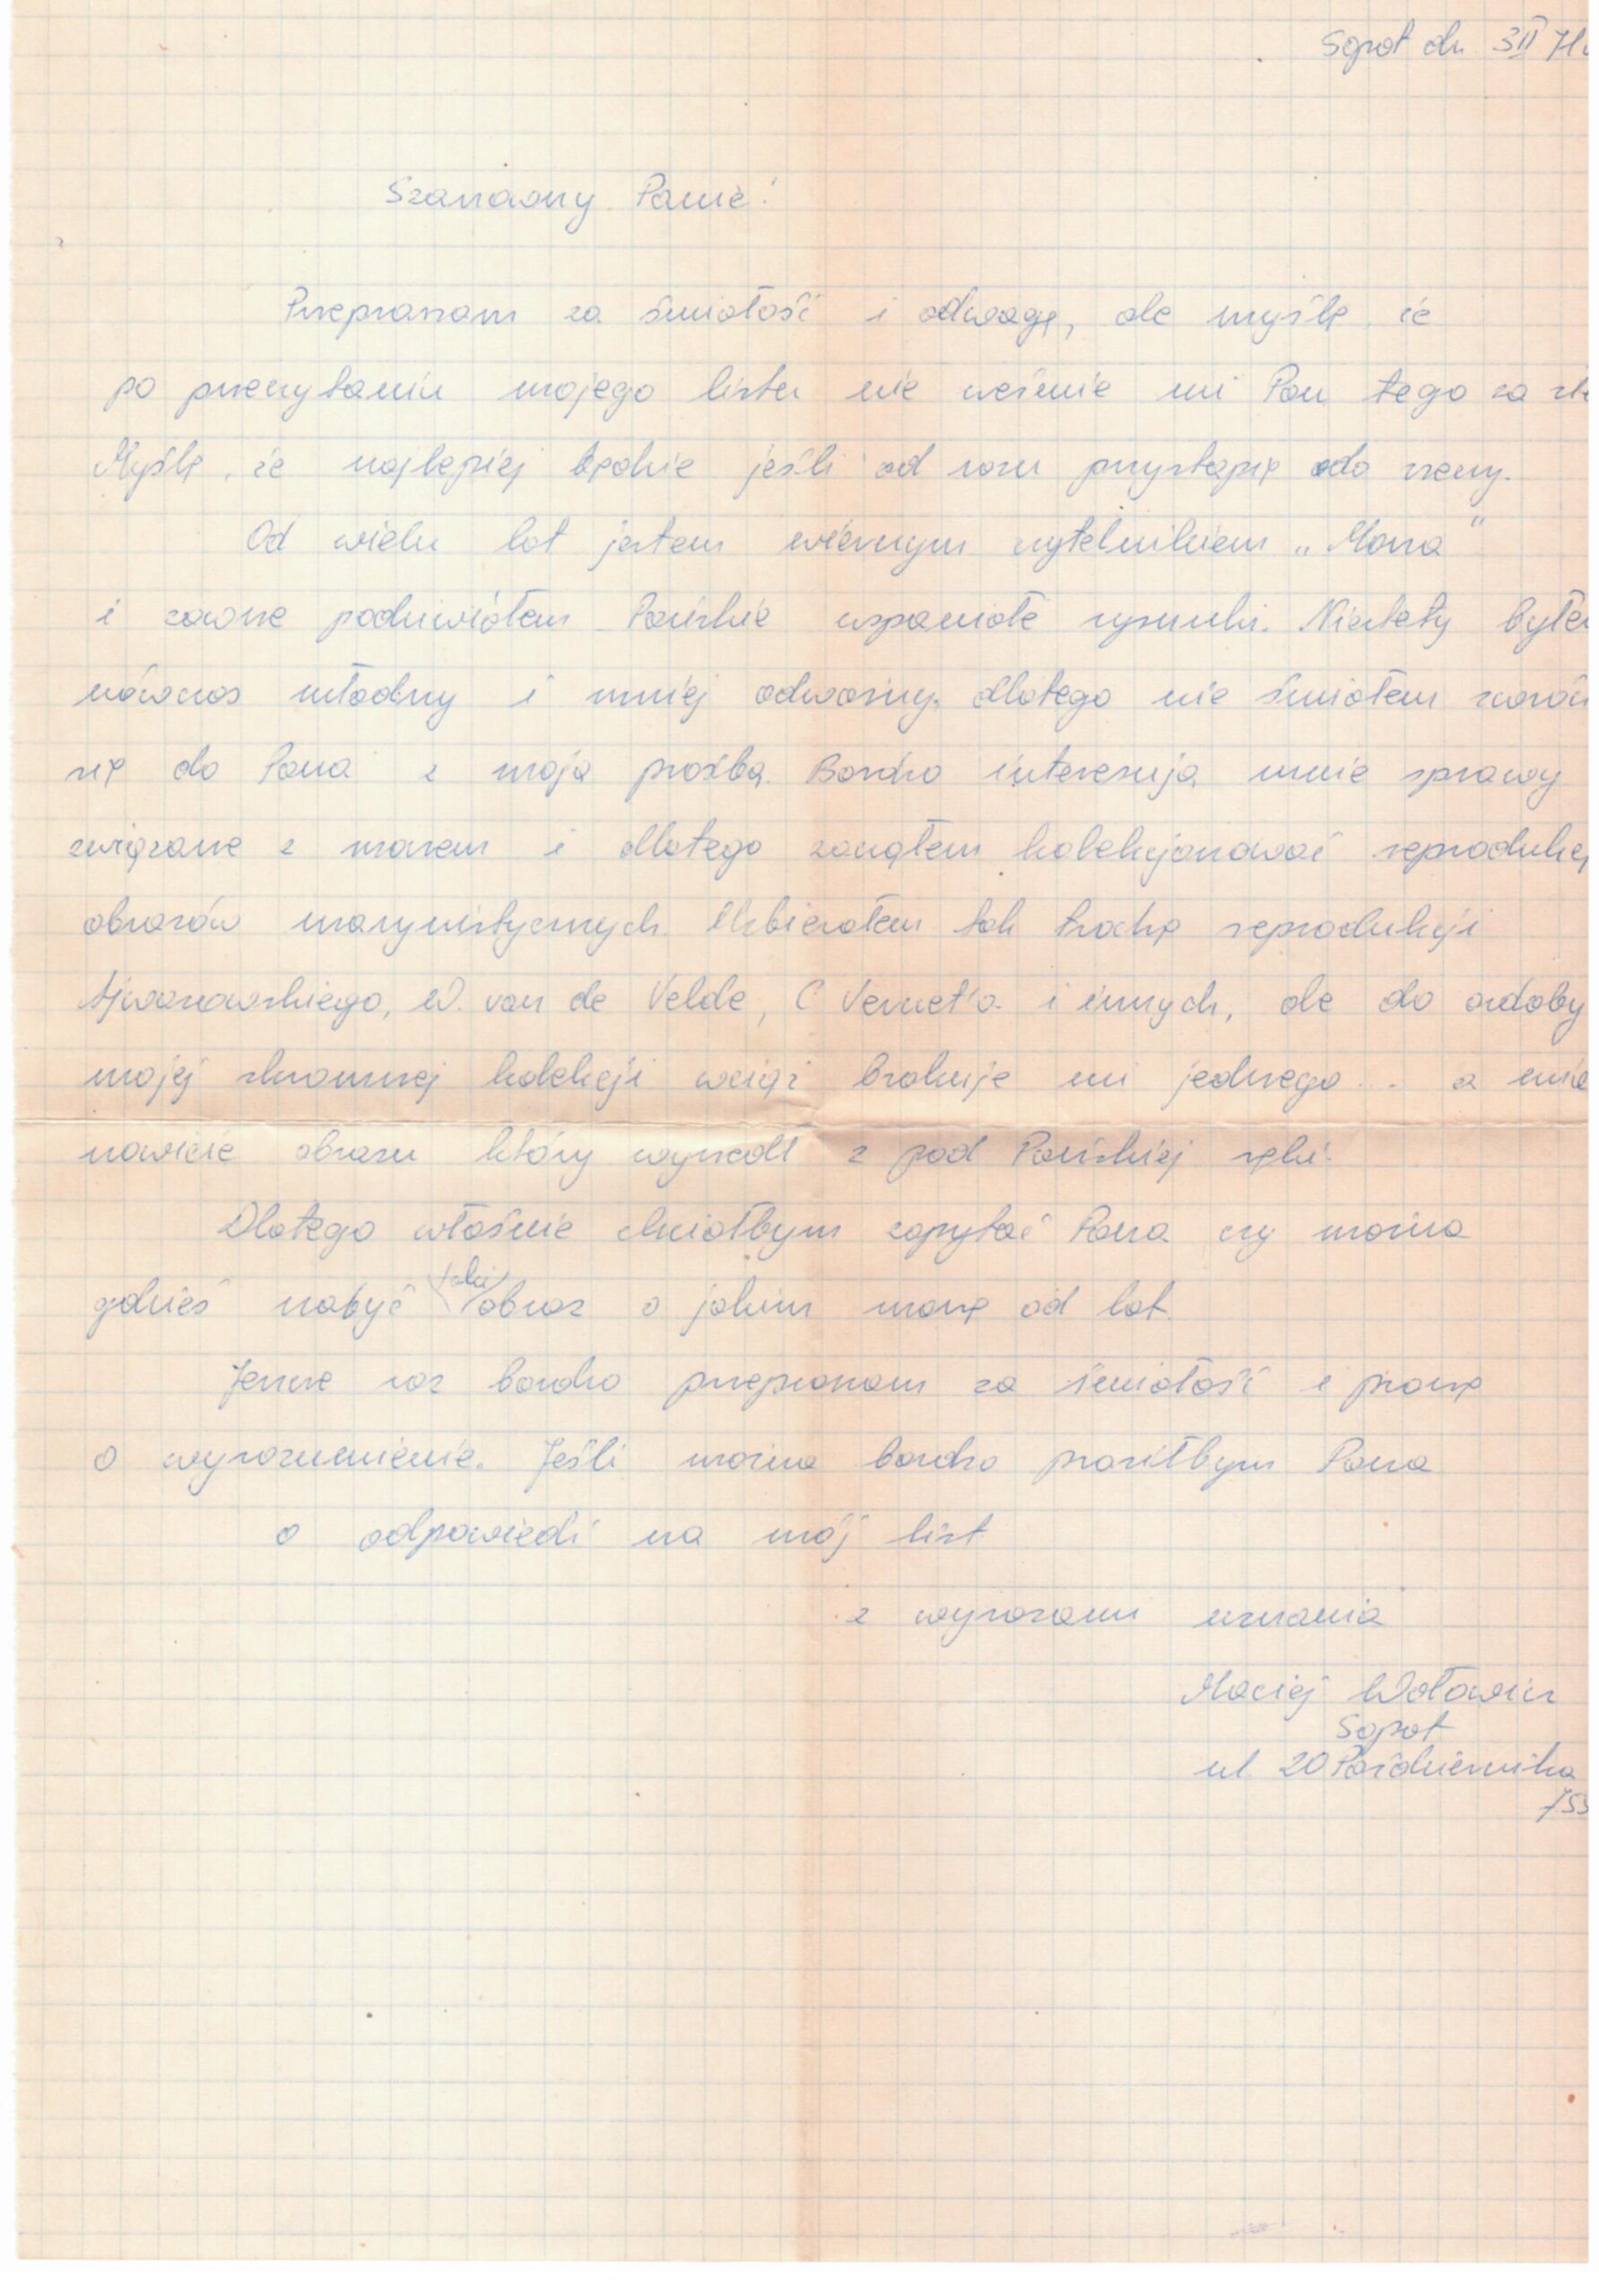 Sopot dn. 3 II 71
Szanowny Panie!
Przepraszam za śmiałość i odwagę, ale myślę, że
po przeczytaniu mojego listu nie weźmie mi Pan tego za
Myślę, że najlepiej będzie jeśli od razu przystąpię do rzeczy.
Od wielu lat jestem wiernym czytelnikiem „Morza”
i zawsze podziwiałem Pańskie wspaniałe rysunki. Niestety byłem
wówczas młodszy i mniej odważny, dlatego nie śmiałem zwróci
się do Pana z moją prośbą. Bardzo interesują mnie sprawy
związane z morzem i dlatego zacząłem kolekcjonować reprodukcj
obrazów marynistycznych. Uzbierałem tak trochę reprodukcji
Ajwazowskiego, W. van de Velde, C Vernet'a i innych, ale do ozdoby
mojej skromnej kolekcji wciąż brakuje mi jednego... a mia
nowicie obrazu który wyszedł z pod Pańskiej ręki.
Dlatego właśnie chciałbym zapytać Pana czy można
gdzieś nabyć taki obraz o jakim marzę od lat.
Jeszcze raz bardzo przepraszam za śmiałość i proszę
o wyrozumienie. Jeśli można bardzo prosiłbym Pana
o odpowiedź na mój list
z wyrazami uznania
Maciej Wołowicz
Sopot
ul. 20 Października
753